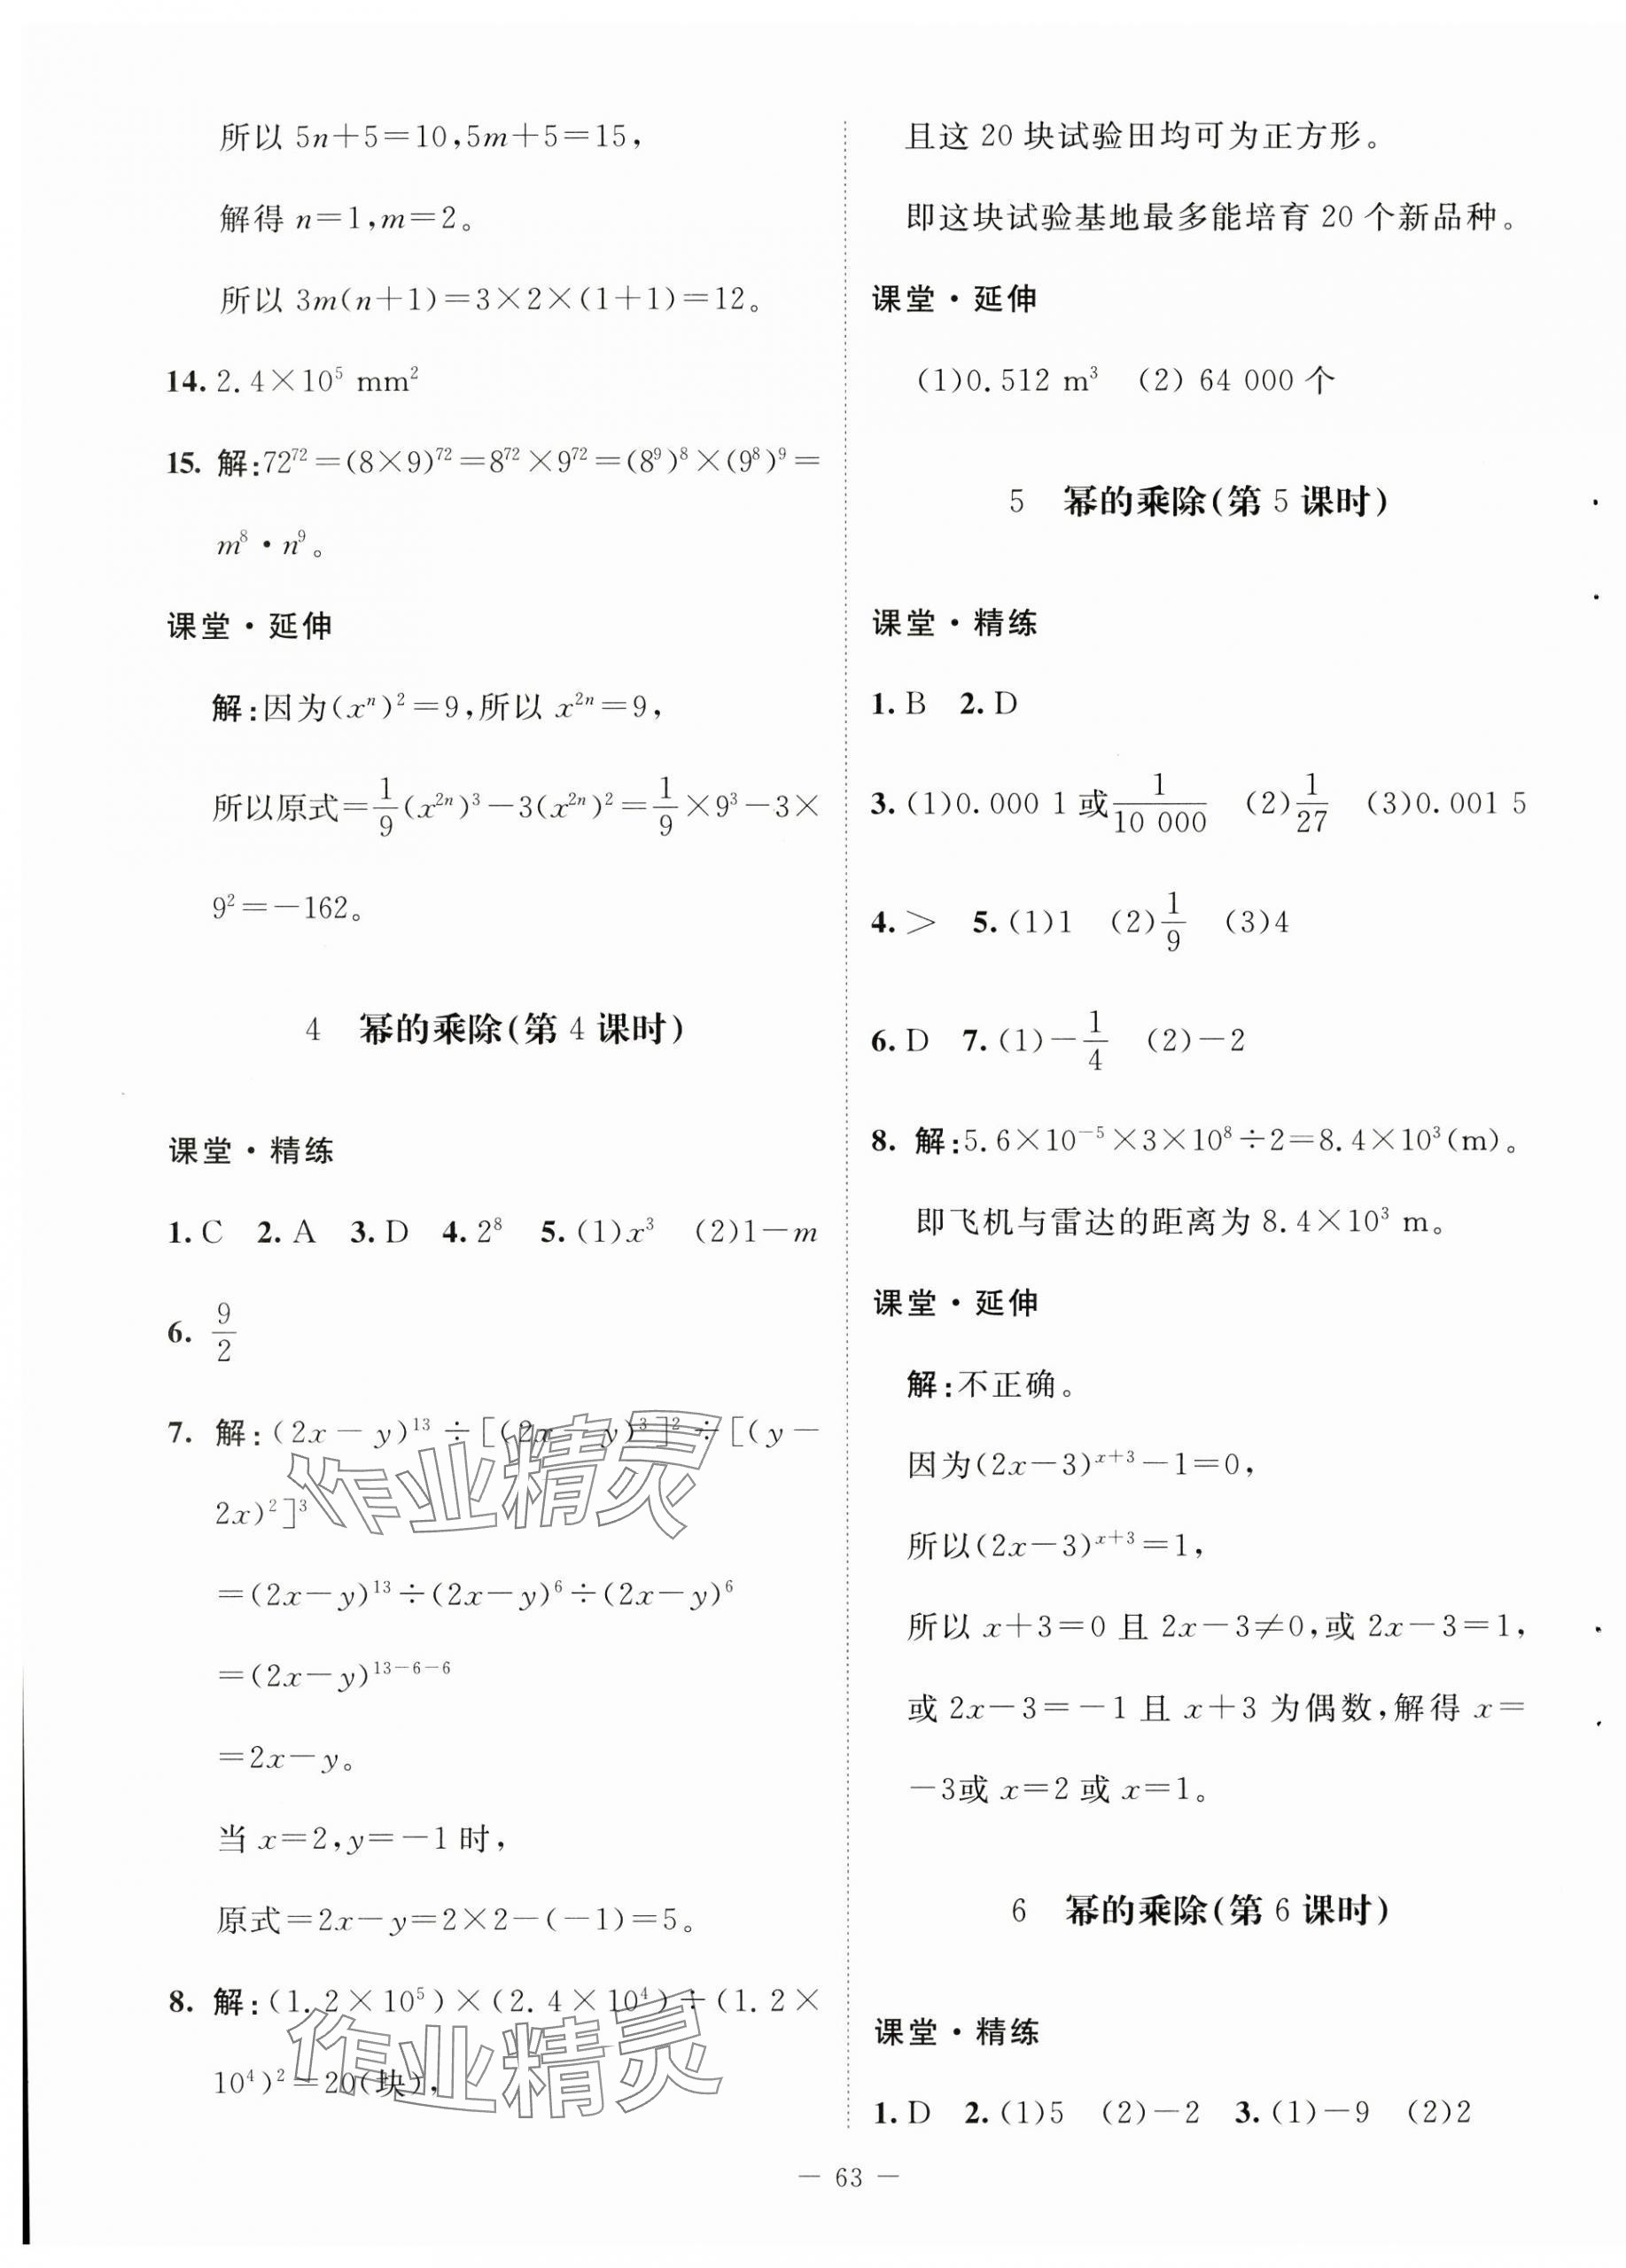 所以 5n+5=10,5m+5=15,
解得 n=1,m=2。
所以 3m(n+1)=3×2×(1+1)=12。
14. 2.4×10⁵ mm²
15. 解:72⁷²=(8×9)⁷²=8⁷²×9⁷²=(8⁹)⁸×(9⁸)⁹=
m⁸·n⁹。
课堂·延伸
解:因为(xⁿ)²=9,所以 x²ⁿ=9,
所以原式=1/9(x²ⁿ)³-3(x²ⁿ)²=1/9×9³-3×
9²=-162。
4 幂的乘除(第 4 课时)
课堂·精练
1. C 2. A 3. D 4. 2⁸ 5. (1)x³ (2)1-m
6. 9/2
7. 解:(2x-y)¹³÷[(2x-y)³]²÷[(y-
2x)²]³
=(2x-y)¹³÷(2x-y)⁶÷(2x-y)⁶
=(2x-y)¹³⁻⁶⁻⁶
=2x-y。
当 x=2,y=-1 时,
原式=2x-y=2×2-(-1)=5。
8. 解:(1.2×10⁵)×(2.4×10⁴)÷(1.2×
10⁴)²=20(块),
且这 20 块试验田均可为正方形。
即这块试验基地最多能培育 20 个新品种。
课堂·延伸
(1)0.512 m³ (2) 64 000 个
5 幂的乘除(第 5 课时)
课堂·精练
1. B 2. D
3. (1)0.000 1 或 1/10 000 (2)1/27 (3)0.001 5
4. > 5. (1)1 (2)1/9 (3)4
6. D 7. (1)-1/4 (2)-2
8. 解:5.6×10⁻⁵×3×10⁸÷2=8.4×10³(m)。
即飞机与雷达的距离为 8.4×10³ m。
课堂·延伸
解:不正确。
因为(2x-3)ˣ⁺³-1=0,
所以(2x-3)ˣ⁺³=1,
所以 x+3=0 且 2x-3≠0,或 2x-3=1,
或 2x-3=-1 且 x+3 为偶数,解得 x=
-3或 x=2 或 x=1。
6 幂的乘除(第 6 课时)
课堂·精练
1. D 2. (1)5 (2)-2 3. (1)-9 (2)2
— 63 —
作业精灵
作业精灵